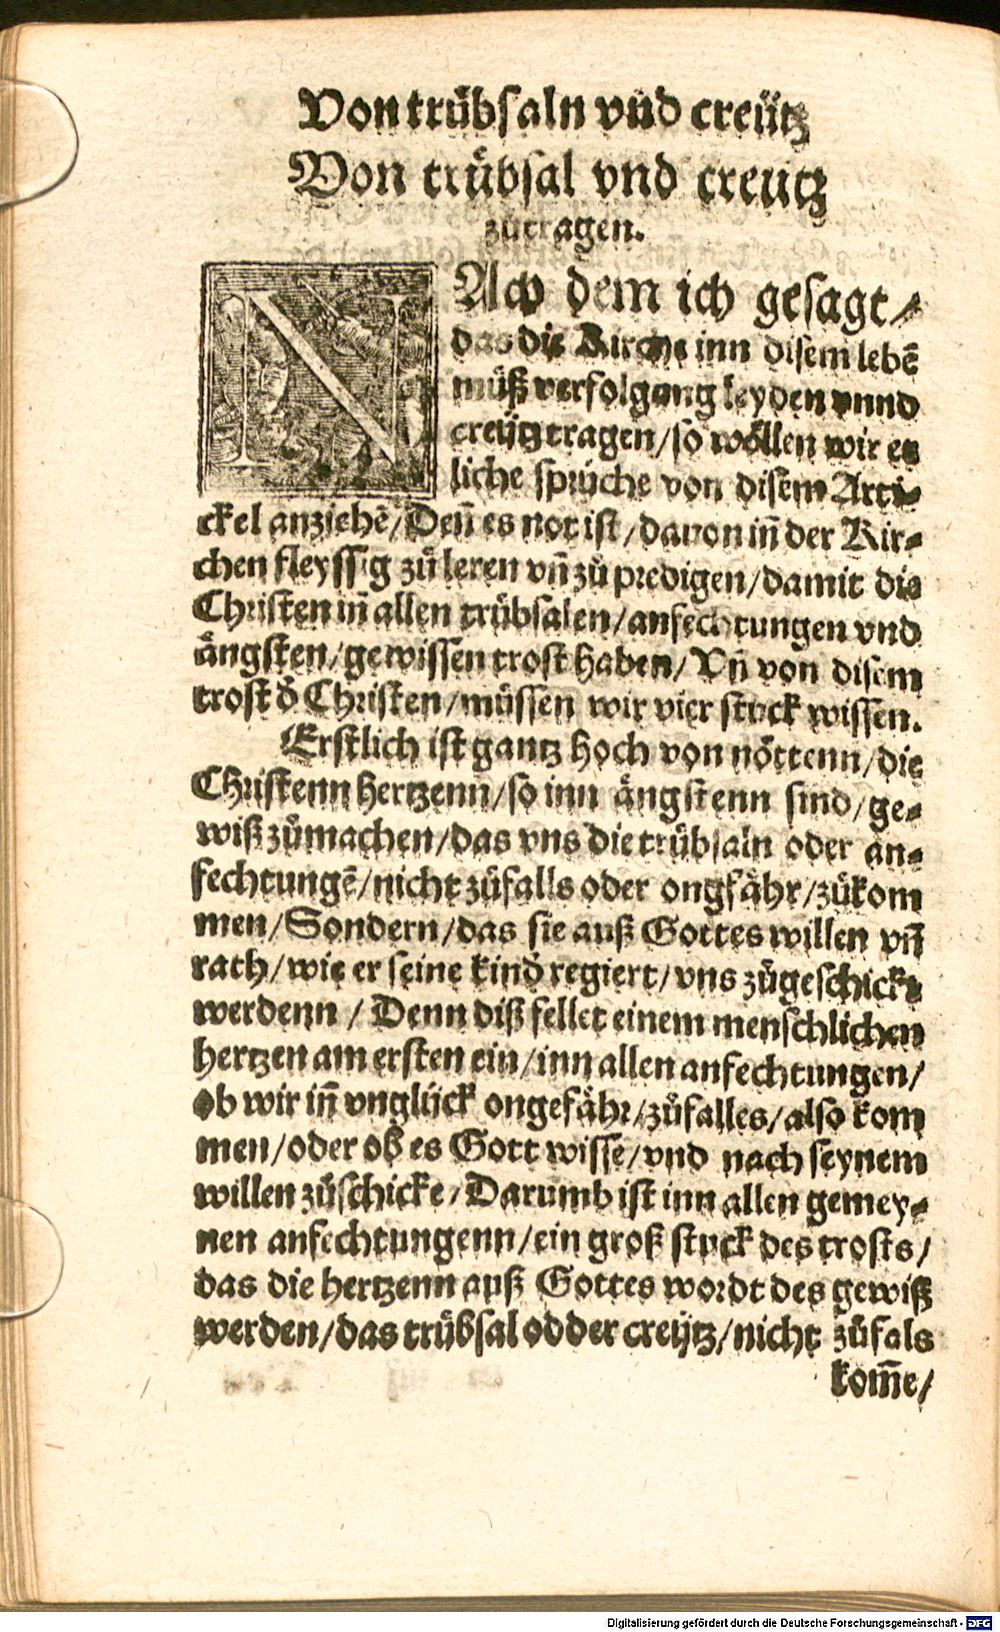 Von trübsaln vnd creütz
Von trübsal vnd creütz
zůtragen.
NAch dem ich gesagt/
das die Kirche inn disem lebē
můß verfolgung leyden vnnd
creütz tragen/so wöllen wir et
liche sprüche von disem Arti-
ckel anziehē/Deñ es not ist/dauon iñ der Kir-
chen fleyssig zů leren vñ zů predigen/damit die
Christen iñ allen trübsalen/anfechtungen vnd
ängsten/gewissen trost haben/Vñ von disem
trost d̕ Christen/müssen wir vier stuck wissen.
Erstlich ist gantz hoch von nöttenn/die
Christenn hertzenn/so inn ängstenn sind/ge-
wiß zůmachen/das vns die trübsaln oder an-
fechtungē/nicht zůfalls oder ongfähr/zůkom
men/Sondern/das sie auß Gottes willen vñ
rath/wie er seine kind̕ regiert/vns zůgeschickt
werdenn / Denn diß fellet einem menschlichen
hertzen am ersten ein/inn allen anfechtungen/
ob wir iñ vnglück ongefähr/zůfalles/also kom
men/oder ob es Gott wisse/vnd nach seynem
willen zůschicke/Darumb ist inn allen gemey-
nen anfechtungenn/ein groß stuck des trosts/
das die hertzenn auß Gottes wordt des gewiß
werden/das trübsal odder creütz/nicht zůfals
kom̄e/
Digitalisierung gefördert durch die Deutsche Forschungsgemeinschaft - DFG